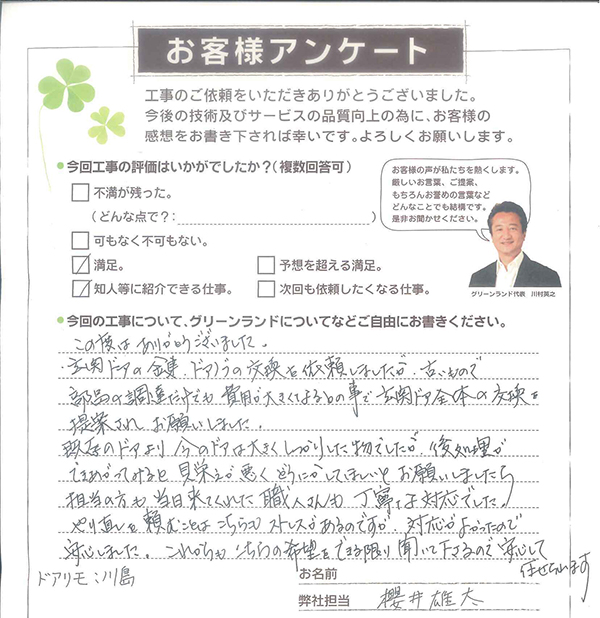 お客様アンケート
工事のご依頼をいただきありがとうございました。
今後の技術及びサービスの品質向上の為に、お客様の
感想をお書き下されば幸いです。よろしくお願いします。
今回工事の評価はいかがでしたか？(複数回答可)
不満が残った。
(どんな点で？: )
可もなく不可もない。
満足。
予想を超える満足。
知人等に紹介できる仕事。
次回も依頼したくなる仕事。
お客様の声が私たちを熱くします。
厳しいお言葉、ご提案、
もちろんお誉めの言葉など
どんなことでも結構です。
是非お聞かせください。
グリーンランド代表 川村英之
今回の工事について、グリーンランドについてなどご自由にお書きください。
この度はありがとうございました。
玄関ドアの鍵、ドアノブの交換を依頼しましたが、古いもので
部品の調達だけでも費用が大きくなるとの事で玄関ドア全体の交換を
提案され、お願いしました。
既存のドアより今のドアは大きくしっかりした物でしたが、後処理が
できあがってみると見栄えが悪くどうにかしてほしいとお願いしましたら
担当の方も当日来てくれた職人さんも丁寧な対応でした。
やり直しを頼むことはこちらもストレスがあるのですが、対応がよかったので
安心しました。これからもこちらの希望をできる限り聞いて下さるので安心して
任せられます
ドアリモ：川島
お名前
弊社担当 櫻井雄太